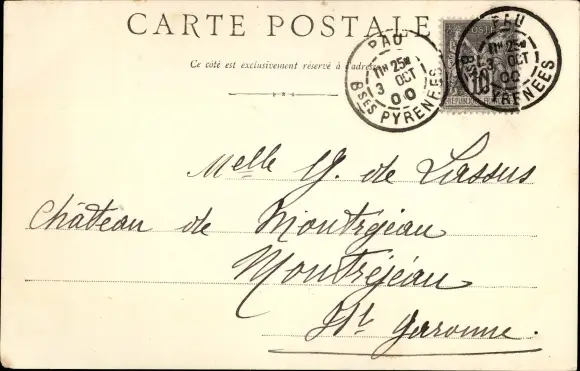 CARTE POSTALE
Ce côté est exclusivement réservé à l'adresse
PAU
11H 25M
3 OCT
00
BSES PYRENEES
PAU
11H 25M
3 OCT
00
BSES PYRENEES
10
Melle G. de Lassus
Château de Montréjeau
Montréjeau
Hte Garonne.